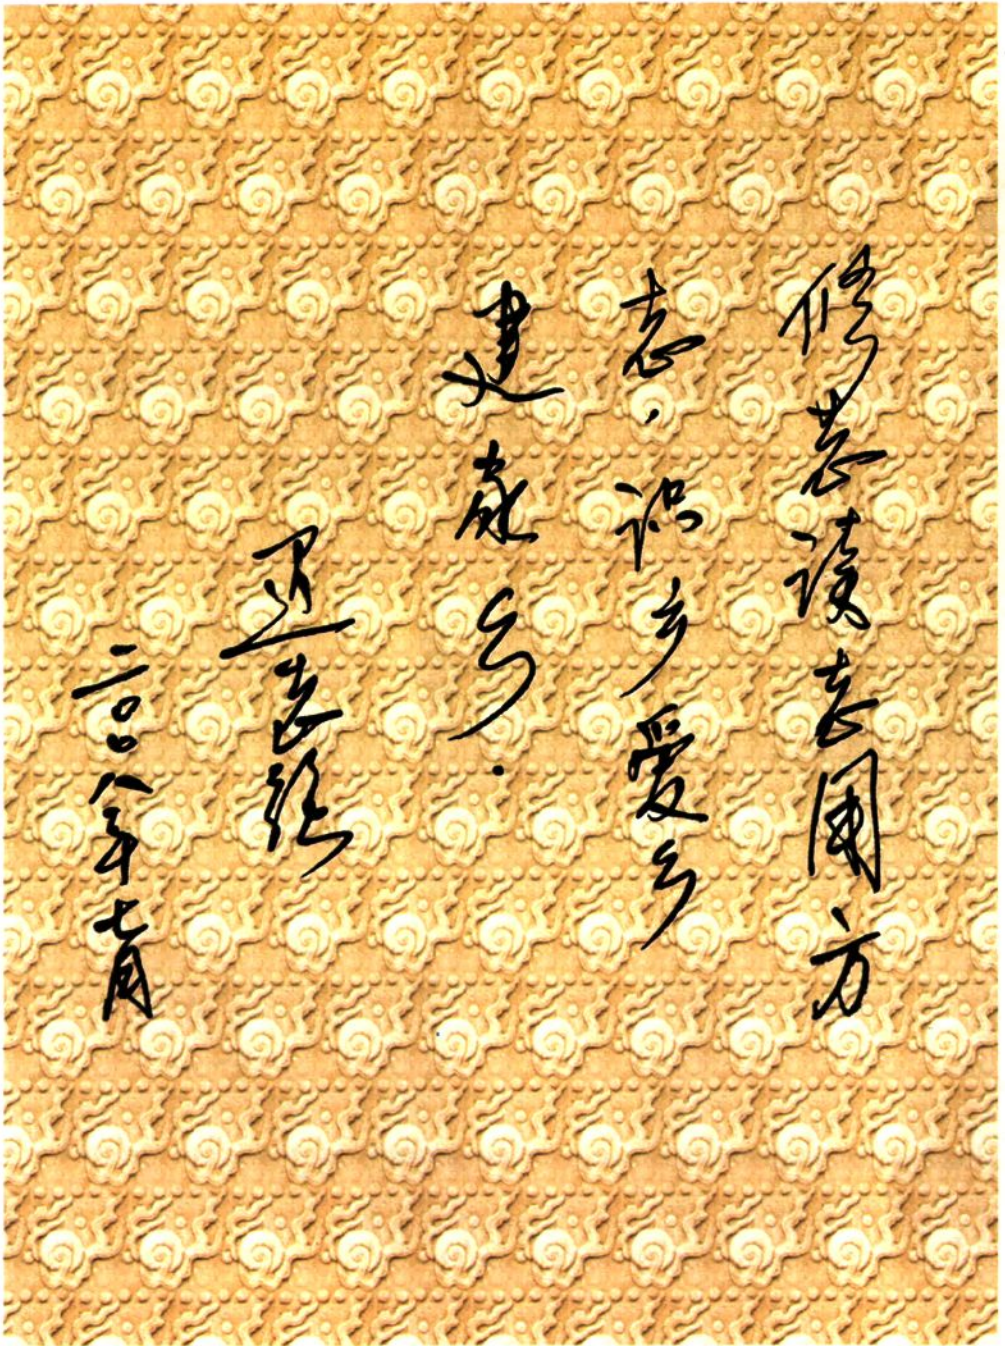 修志读志用方
志，识乡爱乡
建家乡.
二〇〇八年七月